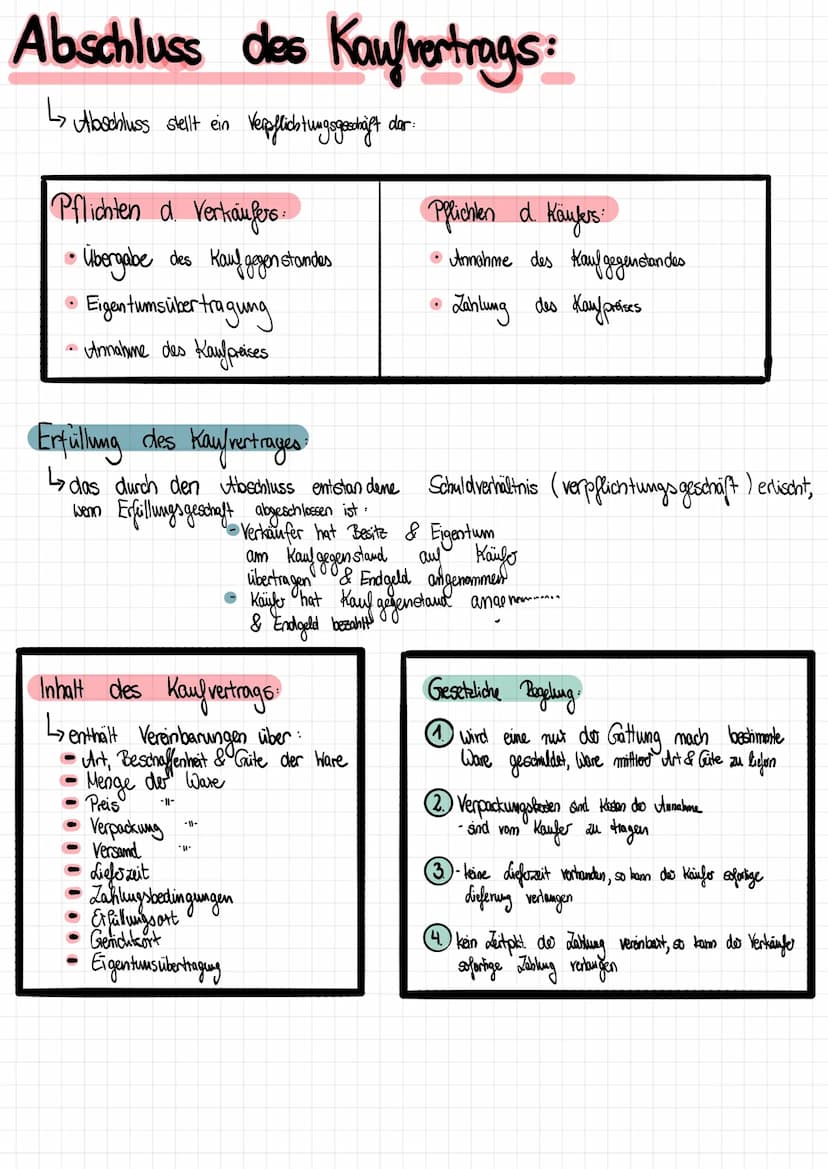 Abschluss des Kaufvertrags:
↳ Abschluss stellt ein Verpflichtungsgeschäft dar:
Pflichten d. Verkäufers:
• Übergabe des Kaufgegenstandes
• Eigentumsübertragung
• Annahme des Kaufpreises
Pflichten d. Käufers:
• Annahme des Kaufgegenstandes
• Zahlung des Kaufpreises
Erfüllung des Kaufvertrages:
↳ das durch den Abschluss entstandene Schuldverhältnis (verpflichtungsgeschäft) erlischt,
wenn Erfüllungsgeschäft abgeschlossen ist:
- Verkäufer hat Besitz & Eigentum
am Kaufgegenstand auf Käufer
übertragen & Endgeld angenommen
- Käufer hat Kaufgegenstand
& Endgeld bezahlt
Inhalt des Kaufvertrags:
↳ enthält Vereinbarungen über:
- Art, Beschaffenheit & Güte der Ware
- Menge der Ware
- Preis -"-
- Verpackung -"-
- Versand -"-
- Lieferzeit
- Zahlungsbedingungen
- Erfüllungsort
- Gerichtsort
- Eigentumsübertragung
Gesetzliche Regelung:
1. wird eine nur der Gattung nach bestimmte
Ware geschuldet, Ware mittlerer Art & Güte zu liefern
2. Verpackungskosten sind Kosten der Annahme
- sind vom Käufer zu tragen
3 - keine Lieferzeit vorhanden, so kann der Käufer sofortige
Lieferung verlangen
4. kein Zeitpkt. der Zahlung vereinbart, so kann der Verkäufer
sofortige Zahlung verlangen